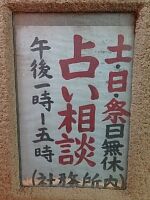 土・日・祭日無休
占い相談
午後一時〜五時
(社務所内)